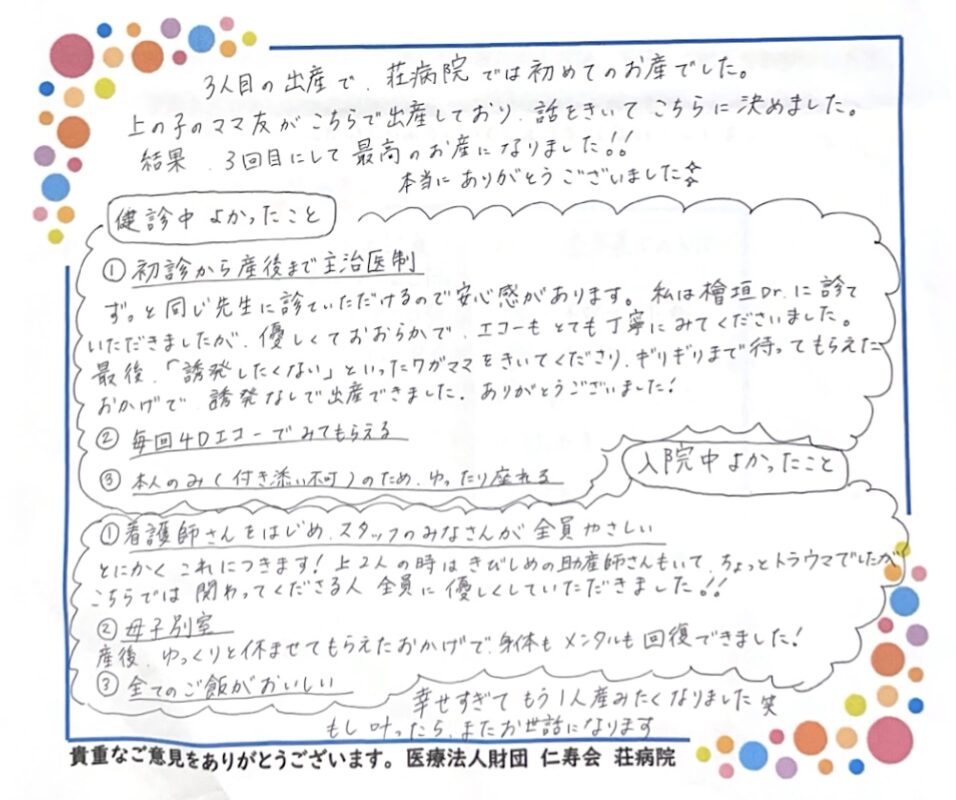 3人目の出産で、荘病院では初めてのお産でした。
上の子のママ友がこちらで出産しており、話をきいてこちらに決めました。
結果、3回目にして最高のお産になりました!!
本当にありがとうございました
健診中よかったこと
① 初診から産後まで主治医制
ずっと同じ先生に診ていただけるので安心感があります。私は檜垣Dr.に診て
いただきましたが、優しくておおらかで、エコーもとても丁寧にみてくださいました。
最後、「誘発したくない」といったワガママをきいてくださり、ギリギリまで待ってもらえた
おかげで、誘発なしで出産できました。ありがとうございました!
② 毎回4Dエコーでみてもらえる
③ 本人のみ(付き添い不可)のため、ゆったり座れる
入院中よかったこと
① 看護師さんをはじめ、スタッフのみなさんが全員やさしい
とにかくこれにつきます!上2人の時はきびしめの助産師さんもいて、ちょっとトラウマでしたが、
こちらでは関わってくださる人全員に優しくしていただきました!!
② 母子別室
産後、ゆっくりと休ませてもらえたおかげで、身体もメンタルも回復できました!
③ 全てのご飯がおいしい
幸せすぎてもう1人産みたくなりました 笑
もし叶ったら、またお世話になります
貴重なご意見をありがとうございます。医療法人財団 仁寿会 荘病院